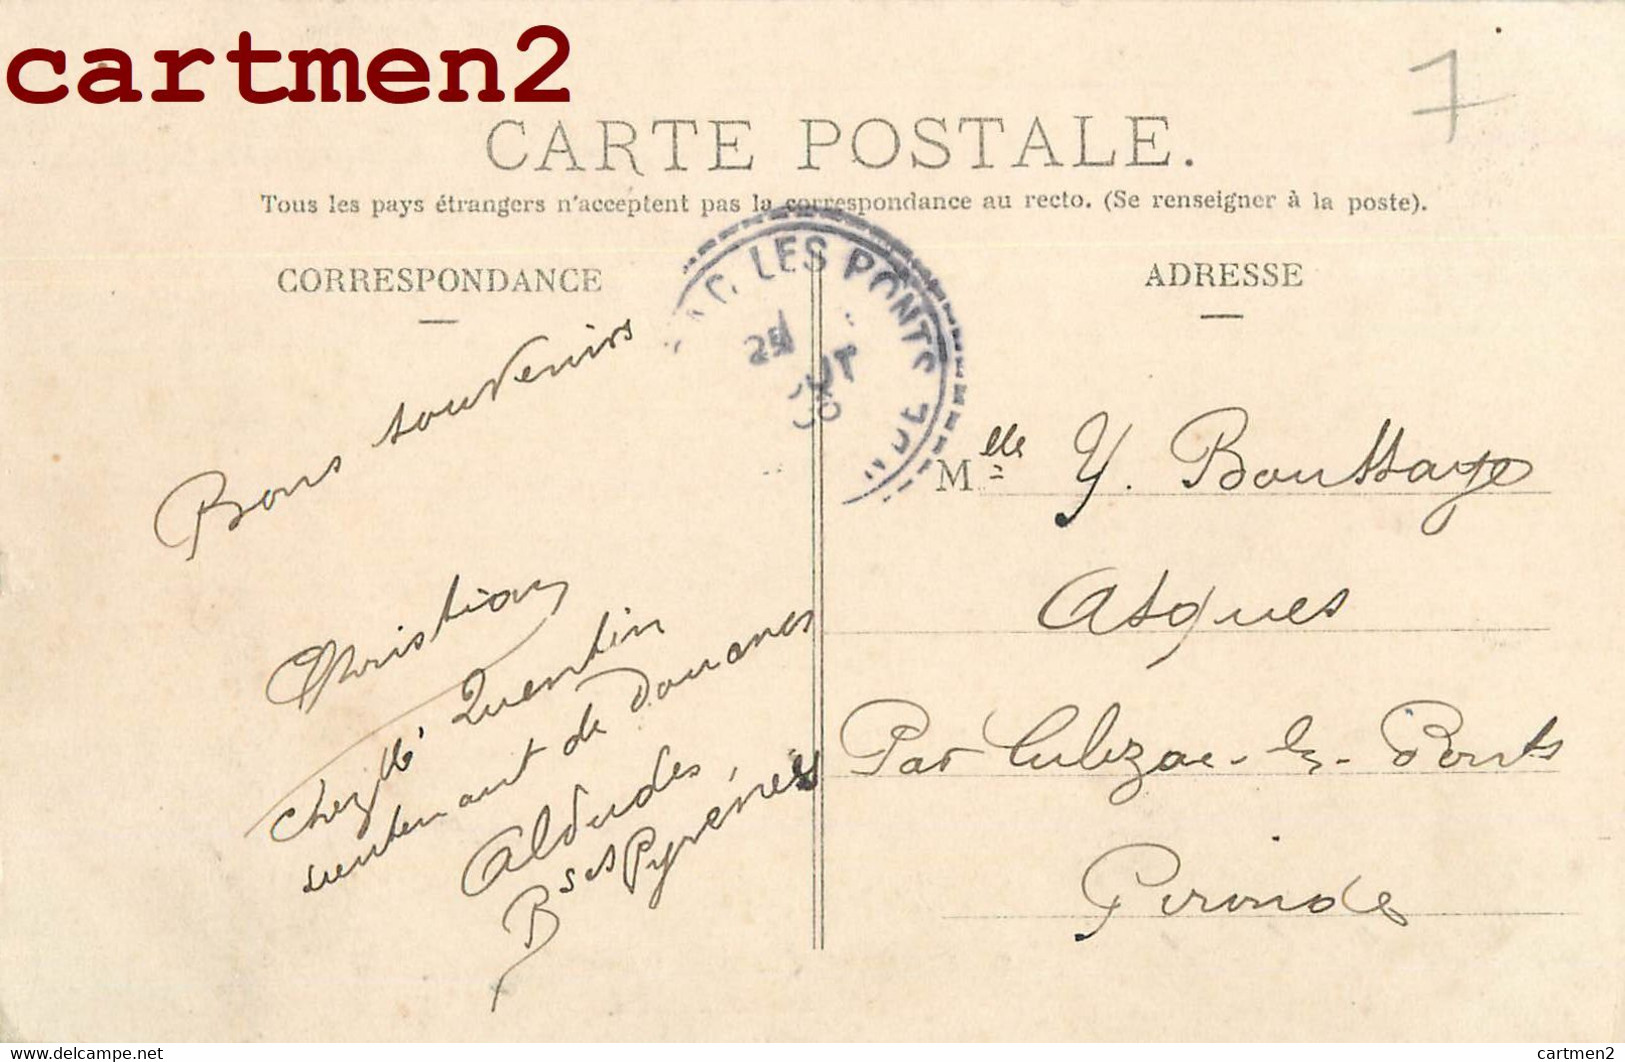 cartmen2
7
CARTE POSTALE.
Tous les pays étrangers n'acceptent pas la correspondance au recto. (Se renseigner à la poste).
CORRESPONDANCE
ADRESSE
LES PONTS
25
Bons souvenirs
Christian
chez Quentin
lieutenant de Douanes
Aldudes,
Bses Pyrénées
Mlle Y.
Asques
Par Cubzac-les-Ponts
Gironde
cartmen2